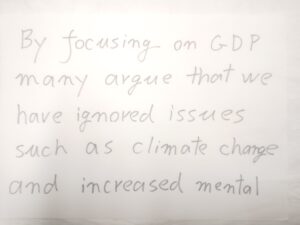 By focusing on GDP
many argue that we
have ignored issues
such as climate change
and increased mental